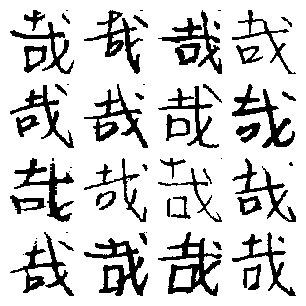 哉哉哉哉
哉哉哉哉
哉哉哉哉
哉哉哉哉